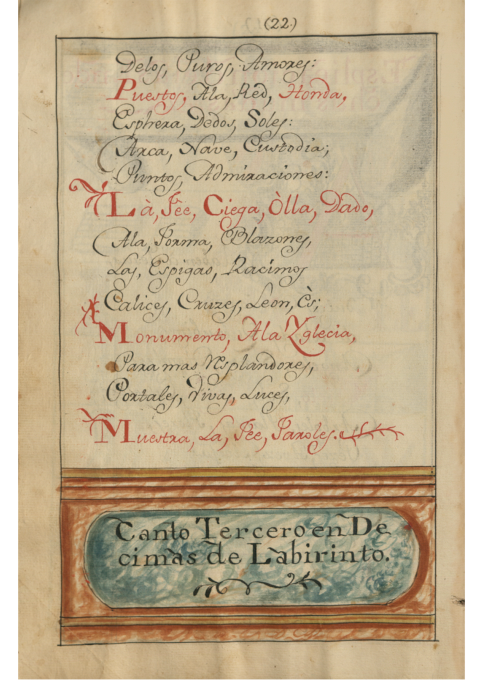 (22.)
Delos, Puros, Amores:
Puestos, Ala, Red, Honda,
Esphera, Dedos, Soles:
Arca, Nave, Custodia;
Puntos, Admiraciones:
Là, Fêe, Ciega, Òlla, Dado,
Ala, Forma, Blazones,
Las, Espigas, Racimos
Calices, Cruzes, Leon, Ès;
Monumento, Ala Yglecia,
Para mas Resplandores,
Portales, Vivas, Luces,
Muestra, La, Fee, Faroles.
Canto Tercero en De
cimas de Labirinto.